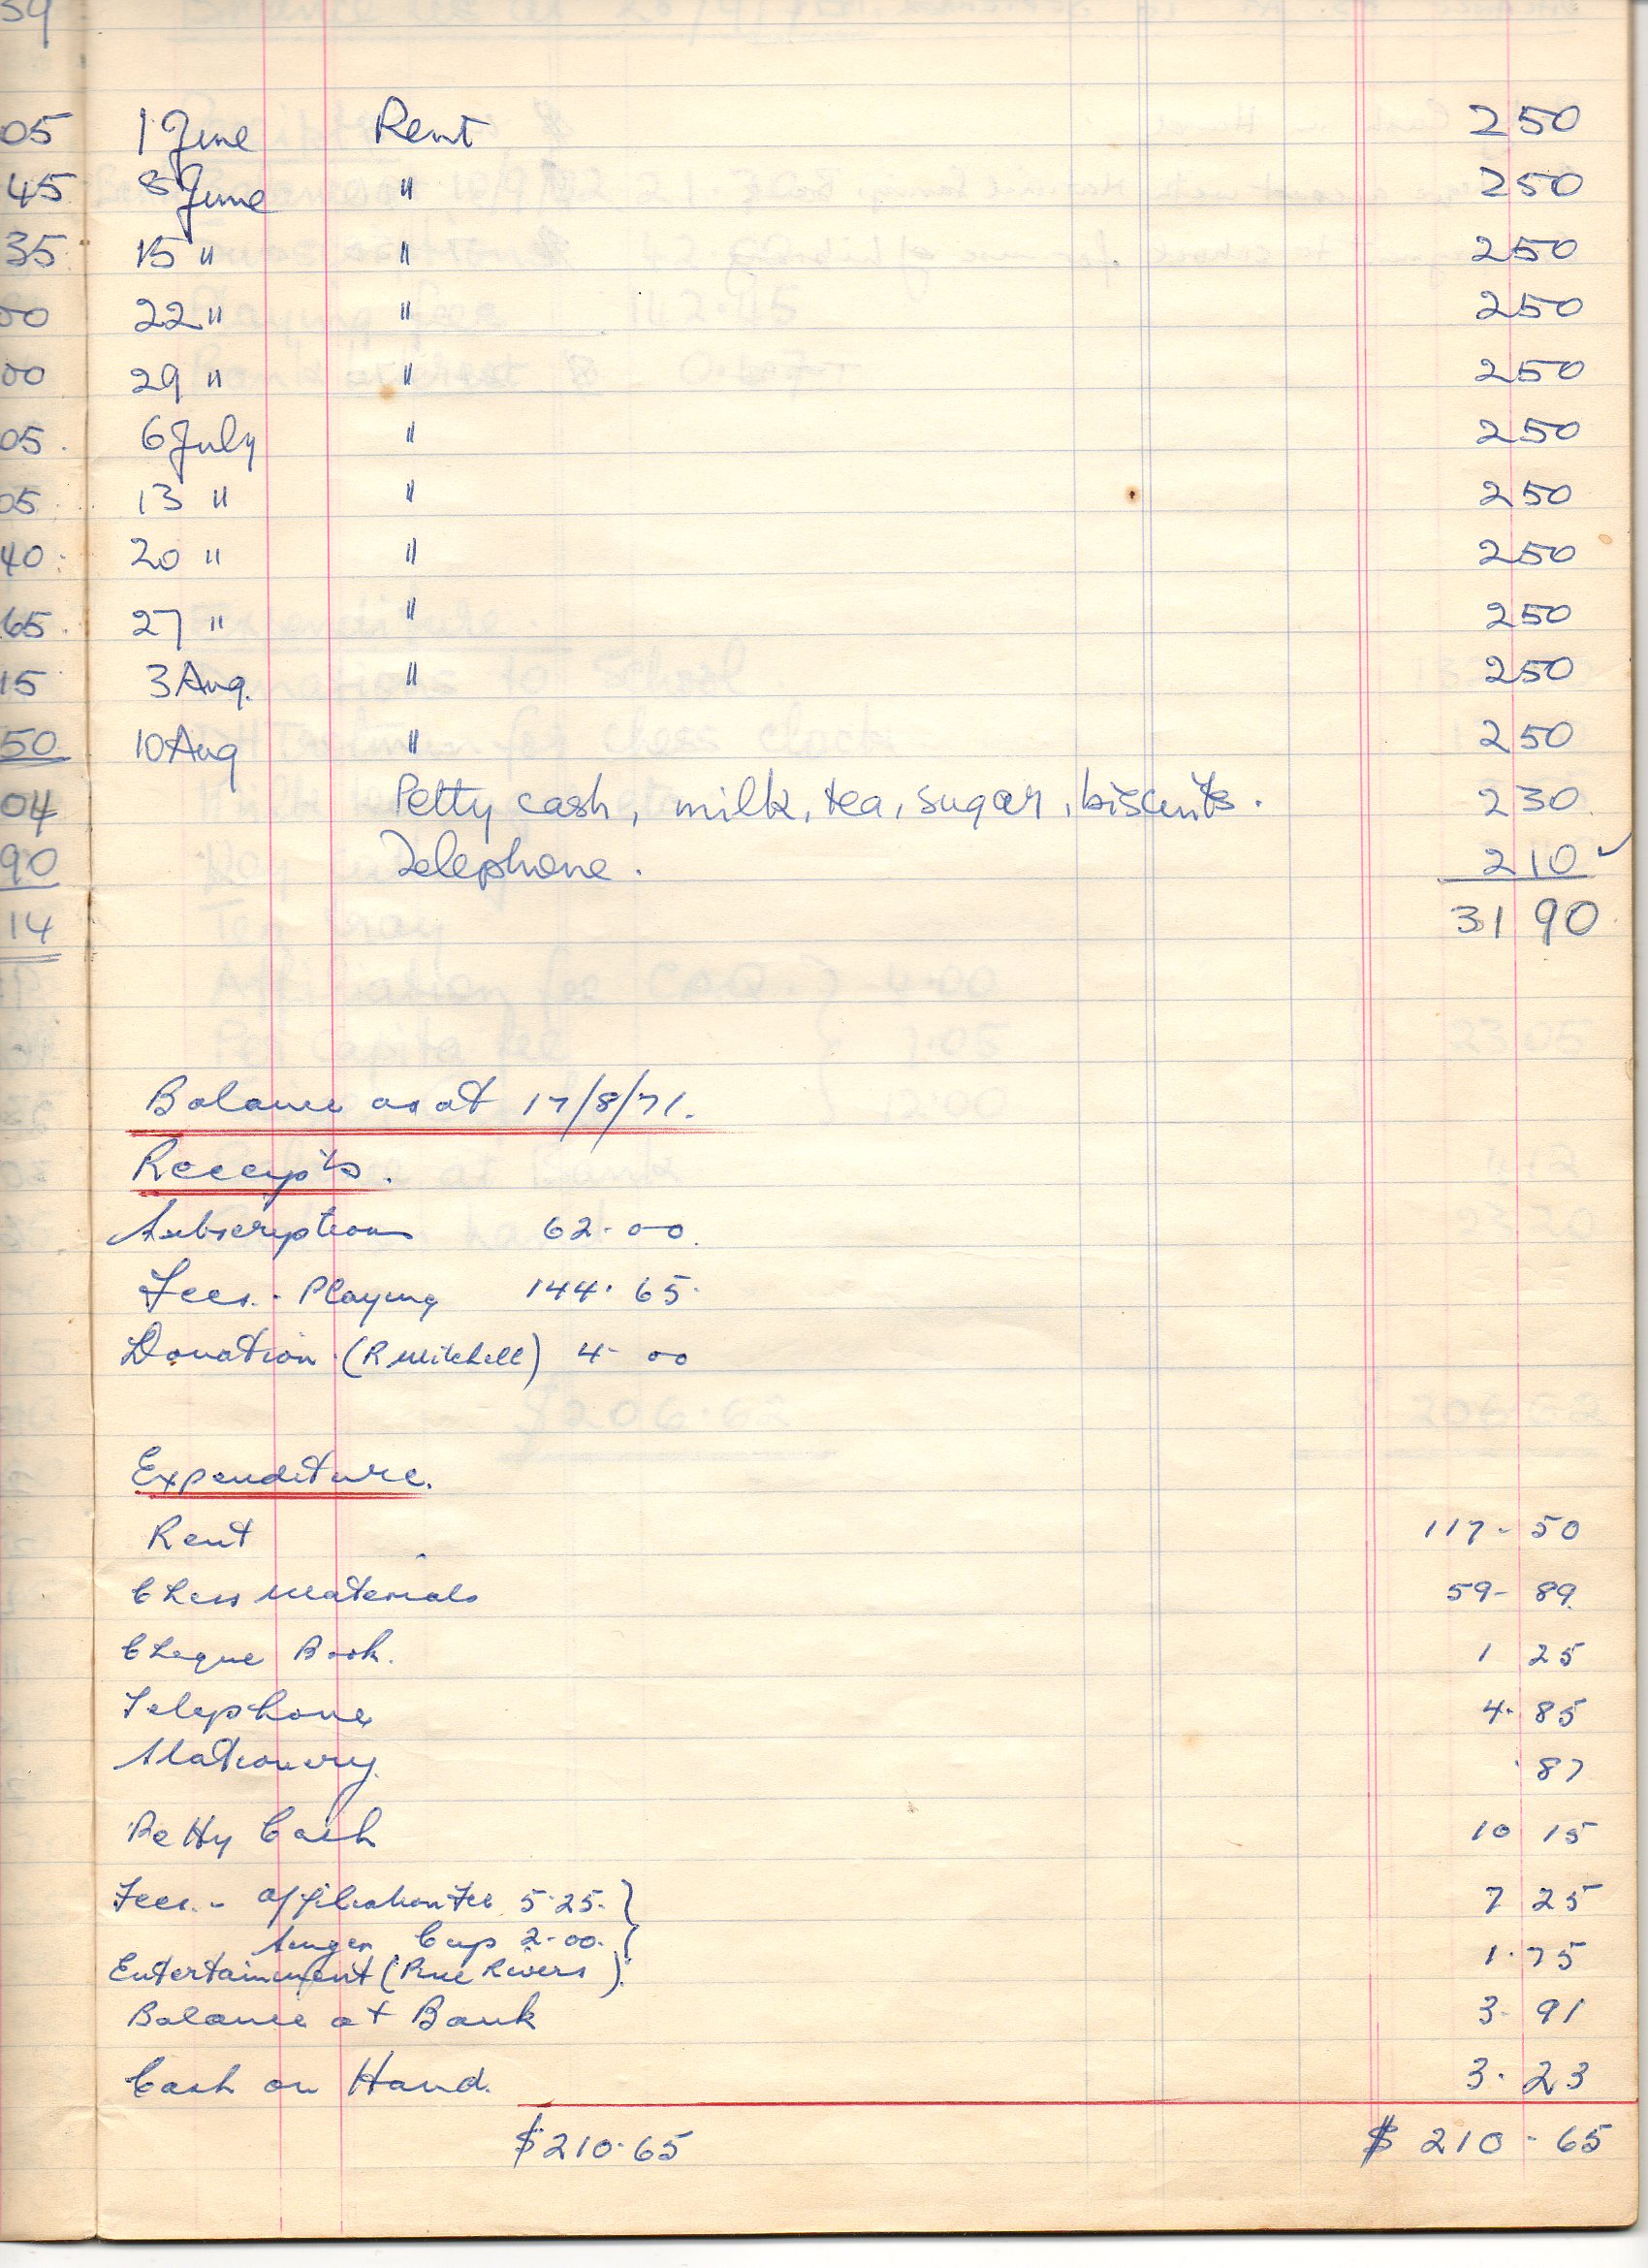 59
05 1 June Rent 2 50
45 8 June " 2 50
35 15 " " 2 50
00 22 " " 2 50
00 29 " " 2 50
05. 6 July " 2 50
05 13 " " 2 50
40 20 " " 2 50
65. 27 " " 2 50
15 3 Aug. " 2 50
50 10 Aug " 2 50
04 Petty cash, milk, tea, sugar, biscuits. 2 30
90 Telephone. 2 10 ✓
14 31 90
Balance as at 17/8/71.
Receipts.
Subscriptions 62.00.
Fees.- Playing 144.65.
Donation.(R Mitchell) 4- 00
Expenditure.
Rent 117- 50
Chess Materials 59- 89.
Cheque Book. 1 25
Telephone 4. 85
Stationery. .87
Petty Cash 10 15
Fees.- Affiliation Fee 5.25.} 7 25
Cup 2.00.
Entertainment (Pine Rivers). 1.75
Balance at Bank 3- 91
Cash on Hand. 3. 23
$210.65 $ 210-65